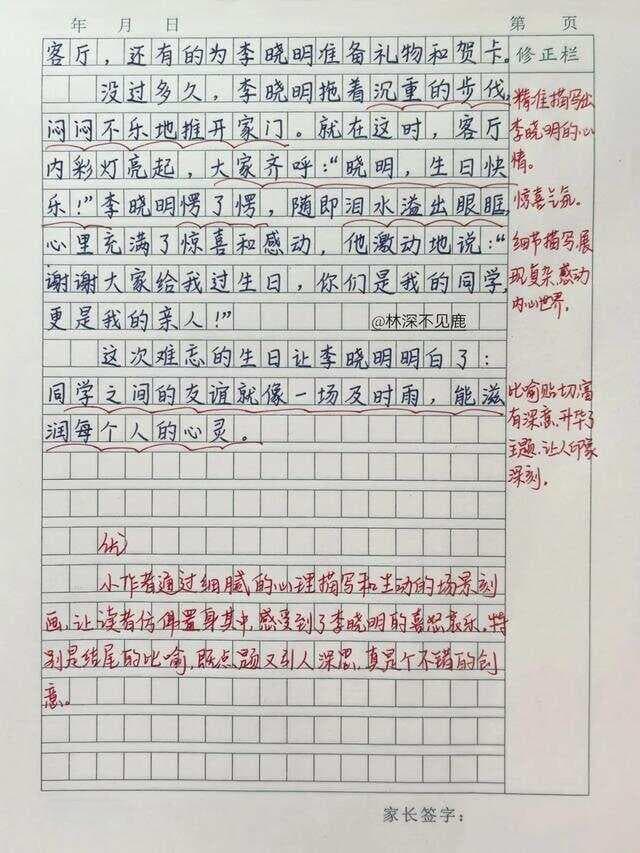 年 月 日 第 页
客厅，还有的为李晓明准备礼物和贺卡。
修正栏
没过多久，李晓明拖着沉重的步伐，
闷闷不乐地推开家门。就在这时，客厅
内彩灯亮起，大家齐呼：“晓明，生日快
乐！”李晓明愣了愣，随即泪水溢出眼眶，
心里充满了惊喜和感动，他激动地说：“
谢谢大家给我过生日，你们是我的同学，
更是我的亲人！”
@林深不见鹿
这次难忘的生日让李晓明明白了：
同学之间的友谊就像一场及时雨，能滋
润每个人的心灵。
精准描写出
李晓明的心
情。
惊喜气氛。
细节描写，展
现复杂，感动
内心世界。
比喻贴切，富
有深意，升华了
主题，让人印象
深刻。
优
小作者通过细腻的心理描写和生动的场景刻
画，让读者仿佛置身其中，感受到了李晓明的喜怒哀乐，特
别是结尾的比喻，既点题又引人深思，真是个不错的创
意。
家长签字：